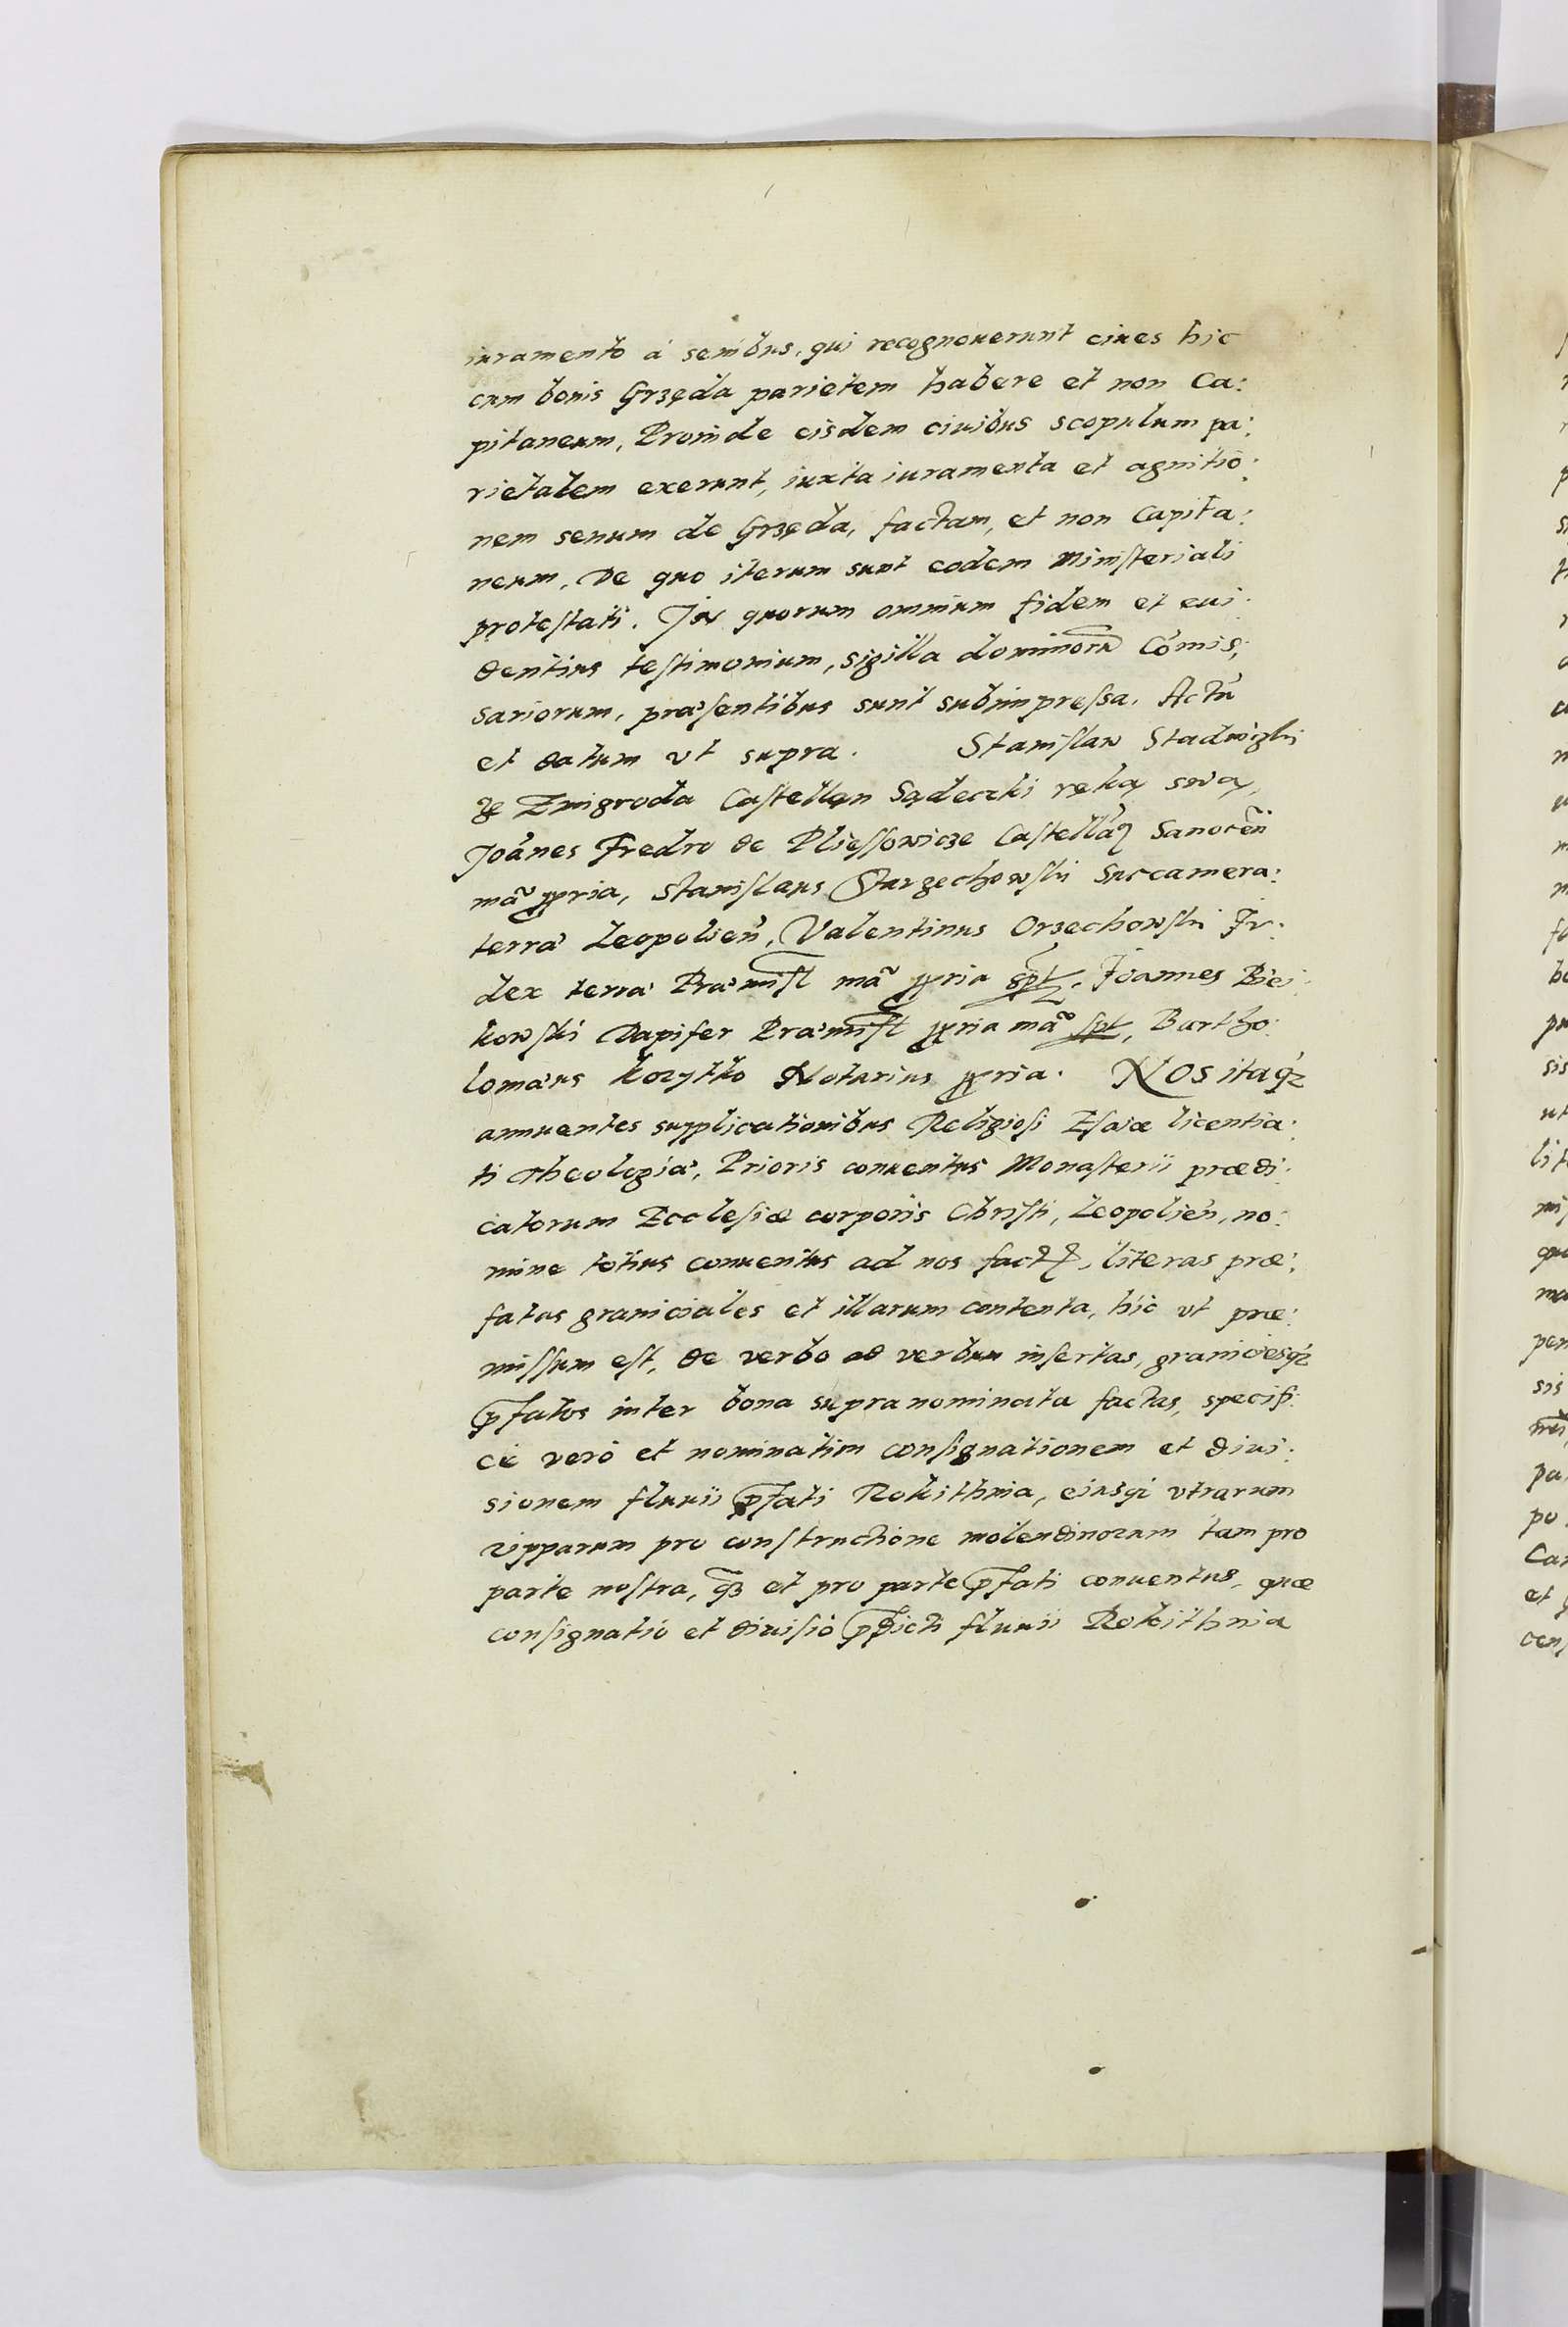 iuramento á senibus, qui recognouerunt ciues hic
cum bonis Grzęda parietem habere et non Ca:
pitaneum, Proinde eisdem ciuibus scopulum pa:
rietalem exerunt, iuxta iuramenta et agnitio:
nem senum de Grzęda, factam, et non Capita:
neum, De quo iterum sunt eodem Ministeriali
protestati. In quorum omnium fidem et eui:
dentius testimonium, sigilla dominorũ Cómis,
sariorum, præsentibus sunt subimpressa. Actũ
et datum vt supra. Stanislaw Stadnizki
ze Zmigroda Castellan Sądeczki ręką swą,
Joánes Fredro de Pliessowicze Castellañ Sanoceñ
mã ppria, Stanislaus Starzechowski Succamera:
terræ Leopolień, Valentinus Orzechowski Iu:
dex terræ Præmisl mã ppria spt, Joannes Biei:
kowski Dapifer Præmisl ppria mã spt, Bartho:
lomæus Kozytko Notarius ppria. NOS itaqз
annuentes supplicationibus Religiosi Esaiæ licentia:
ti Theologiæ, Prioris conuentus Monasterii prædi:
catorum Ecclesiæ corporis Christi, Leopolień, no:
mine totius conuentus ad nos fact, literas præ:
fatas graniciales et illarum contenta, hic vt præ:
missum est, de verbo ad verbum insertas, graniciesqз
pfatos inter bona supranominata factas, specifi:
ce vero et nominatim consignationem et diui:
sionem fluuii pfati Rokithnia, eiusqз vtrarum
ripparum pro constructione molendinorum tam pro
parte nostra, qз et pro parte pfati conuentus, quæ
consignatio et diuisio pdicti fluuii Rokithnia